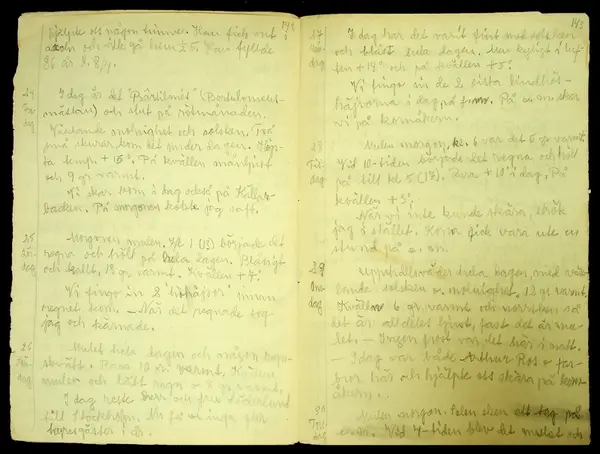 hjälpte oss någon timmer. Han fick ont
och åkte på hem kl 5. Han fyllde
86 år d. 8/7.
24
Fre-
dag
I dag är det "Bärtilmist" (Bartolomeus-
mässan) och slut på rötmånaden.
Växlande molnighet och solsken. Två
små skurar kom det under dagen. Högs-
ta temp. + 15°. På kvällen månljust
och 9 gr varmt.
Vi skar korn i dag också på Källar-
backen. På morgonen kokte jag saft.
25
Lör-
dag
Morgonen mulen. Kl. 1 (13) började det
regna och höll på hela dagen. Blåsigt
och kallt, 12 gr. varmt. Kvällen + 7°
Vi fingo in 2 innan
regnet kom. – När det regnade tog
jag och kärnade.
26
Sön-
dag
Mulet hela dagen och någon regn-
skvätt. Bara 10 gr. varmt. Kvällen
mulen och lätt regn o 8 gr varmt.
I dag reste herr och fru
till Stockholm. Nu få vi inga fler
i år.
145
27
Mån-
dag
I dag har det varit fint med solsken
och blåst hela dagen. Men kyligt i luf-
ten + 14° och på kvällen + 5°
Vi fingo in de 2 sista
i dag, på fm. På em skar
vi på kornåkern.
28
Tis-
dag
Mulen morgon, kl. 6 var det 6 gr varmt.
Vid 10-tiden började det regna och höll
på till kl 5 (17). Bara + 10° i dag. På
kvällen + 5°.
När vi inte kunde skära, strök
jag i stället. Korna fick vara ute en
stund på e. m.
29
Ons-
dag
Uppehållsväder hela dagen, med väx-
lande solsken o. molnighet, 12 gr varmt.
Kvällen 6 gr. varmt och norrsken så
det är alldeles ljust, fast det är mu-
let. – Ingen frost var det här i natt.
– I dag var både Arthur Ros. o far-
bror här och hjälpte oss skära på korn-
åkern.
30
Tors-
dag
Mulen morgon. Solen sken ett tag på
Vid 4-tiden blev det mulet och